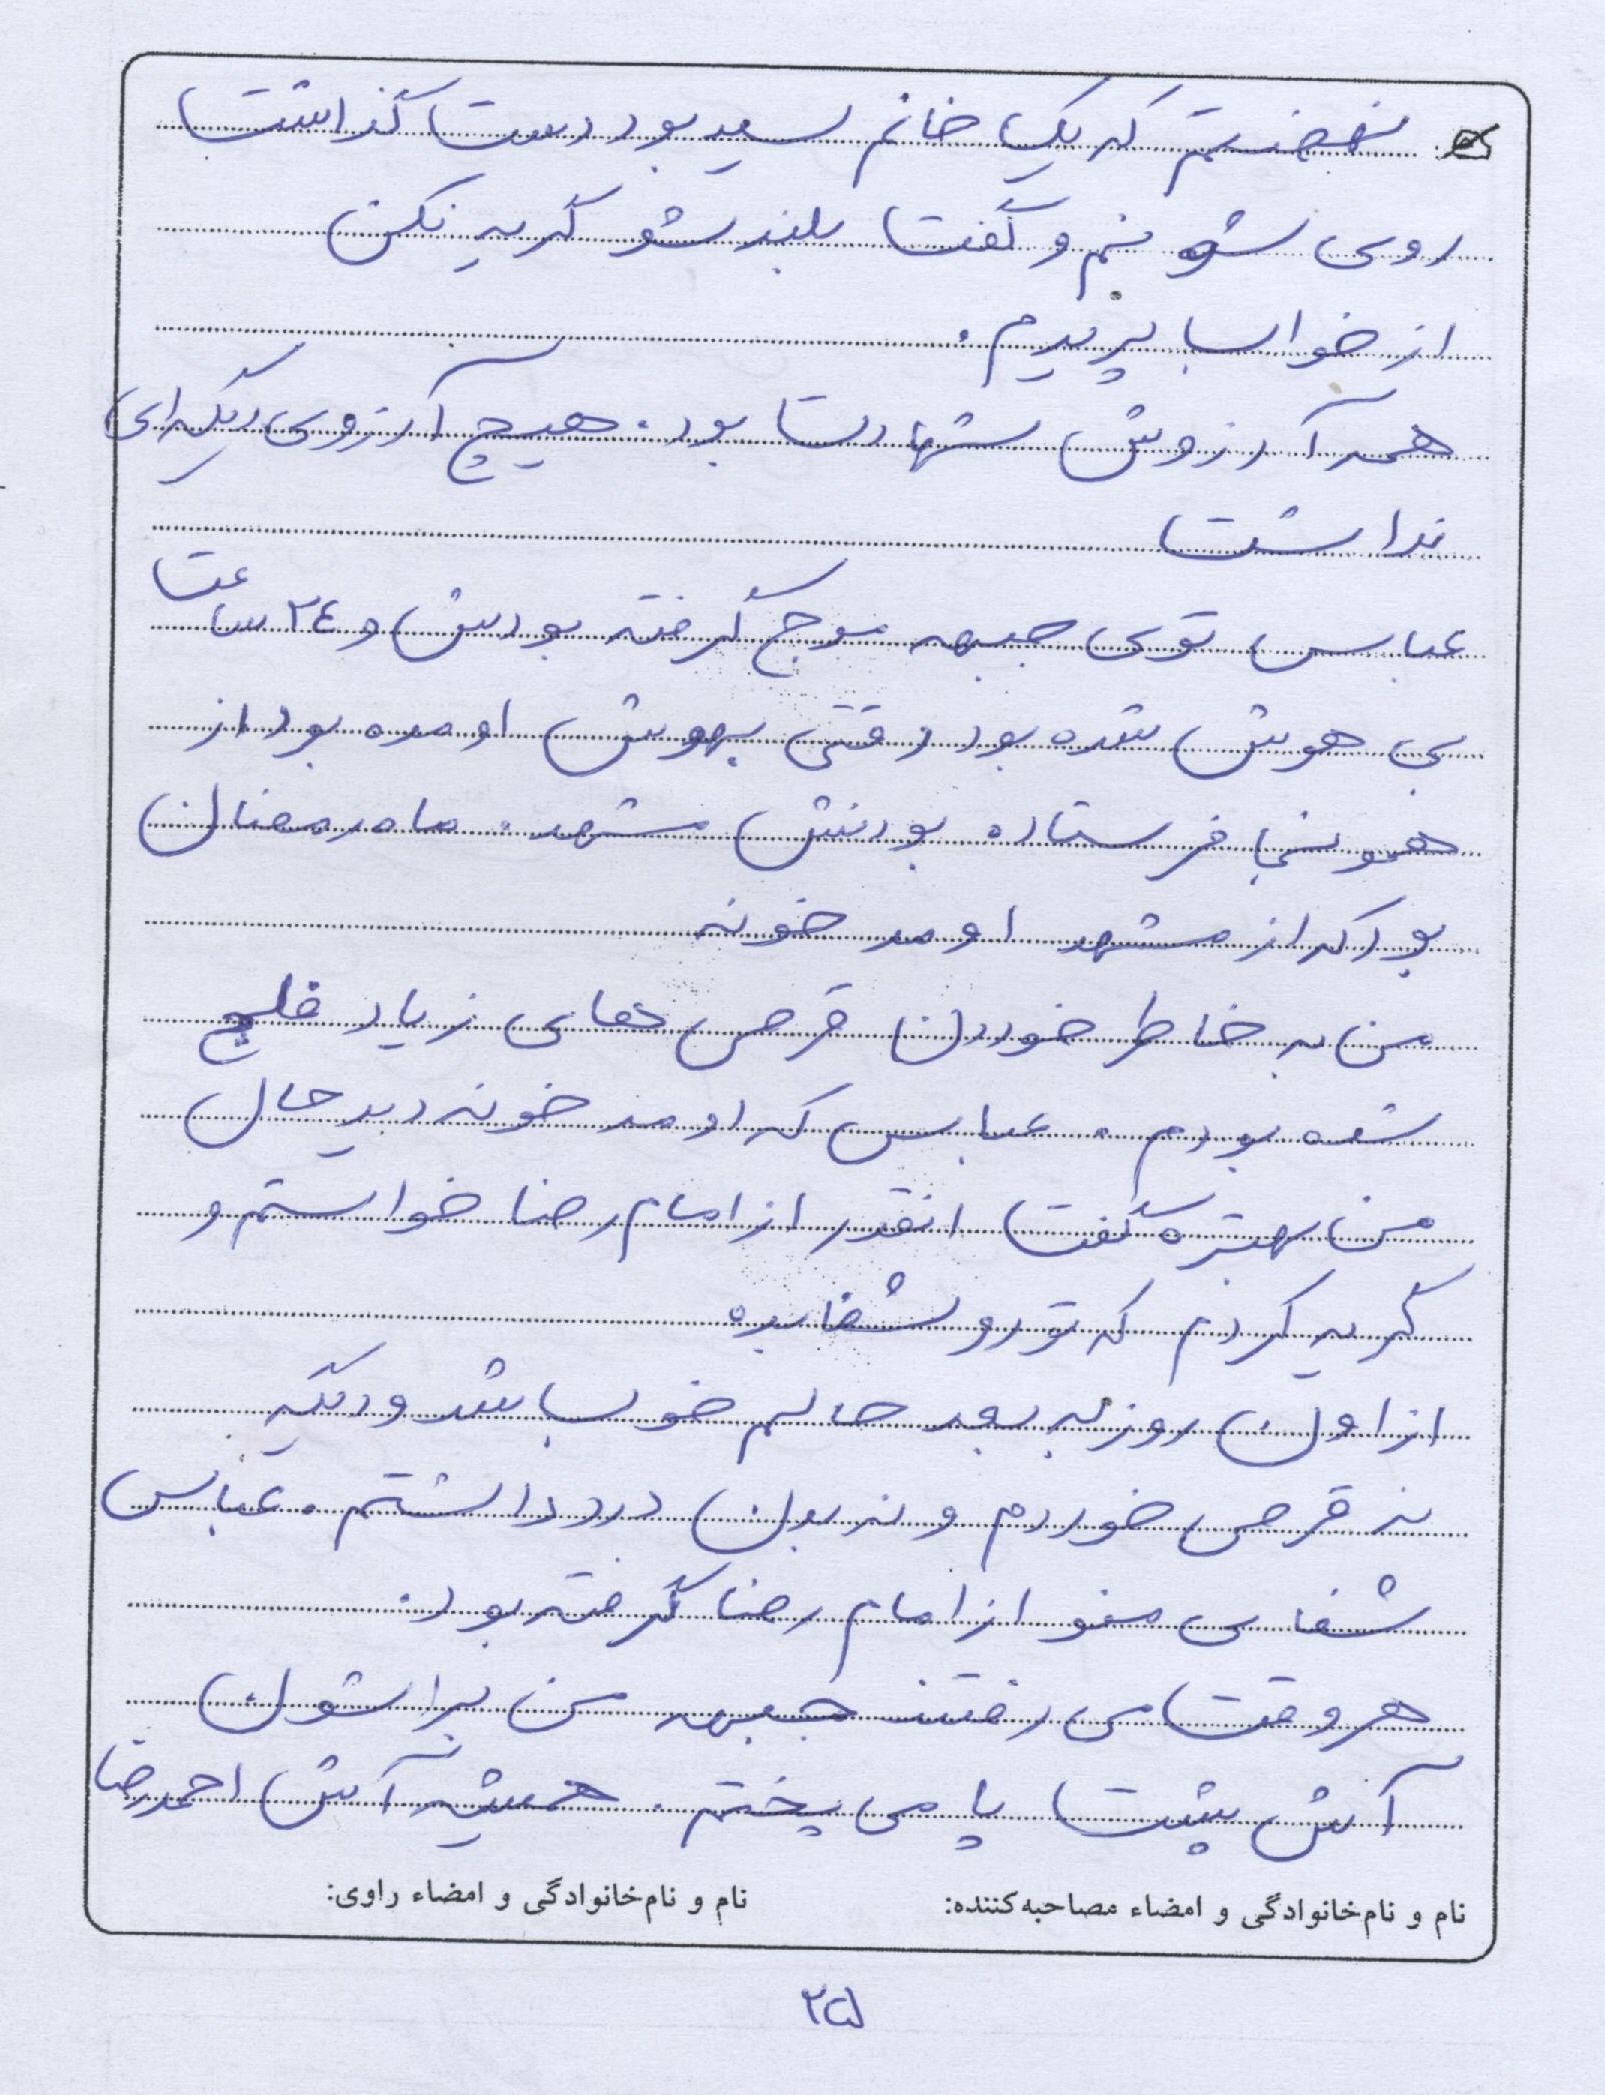 نفهمیدم که یک خانم سید بود دست گذاشت
روی شونم و گفت بلند شو گریه نکن
از خواب پریدم.
همه آرزوش شهادت بود. هیچ آرزوی دیگه ای
نداشت
عباس توی جبهه موج گرفته بودش و ۲۴ ساعت
بی هوش شده بود وقتی بهوش اومده بود از
همونجا فرستاده بودنش مشهد. ماه رمضان
بود که از مشهد اومد خونه
من به خاطر خوردن قرص های زیاد فلج
شده بودم. عباس که اومد خونه دید حال
من بهتره گفت انقدر از امام رضا خواستم و
گریه کردم که تورو شفا بده
از اون روز به بعد حالم خوب شد و دیگه
نه قرص خوردم و نه بدن درد داشتم. عباس
شفای منو از امام رضا گرفته بود.
هروقت می رفتند جبهه من براشون
آش پشت پا می پختم. همیشه آش احمدرضا
نام و نام‌خانوادگی و امضاء مصاحبه‌کننده: نام و نام‌خانوادگی و امضاء راوی:
۲۵